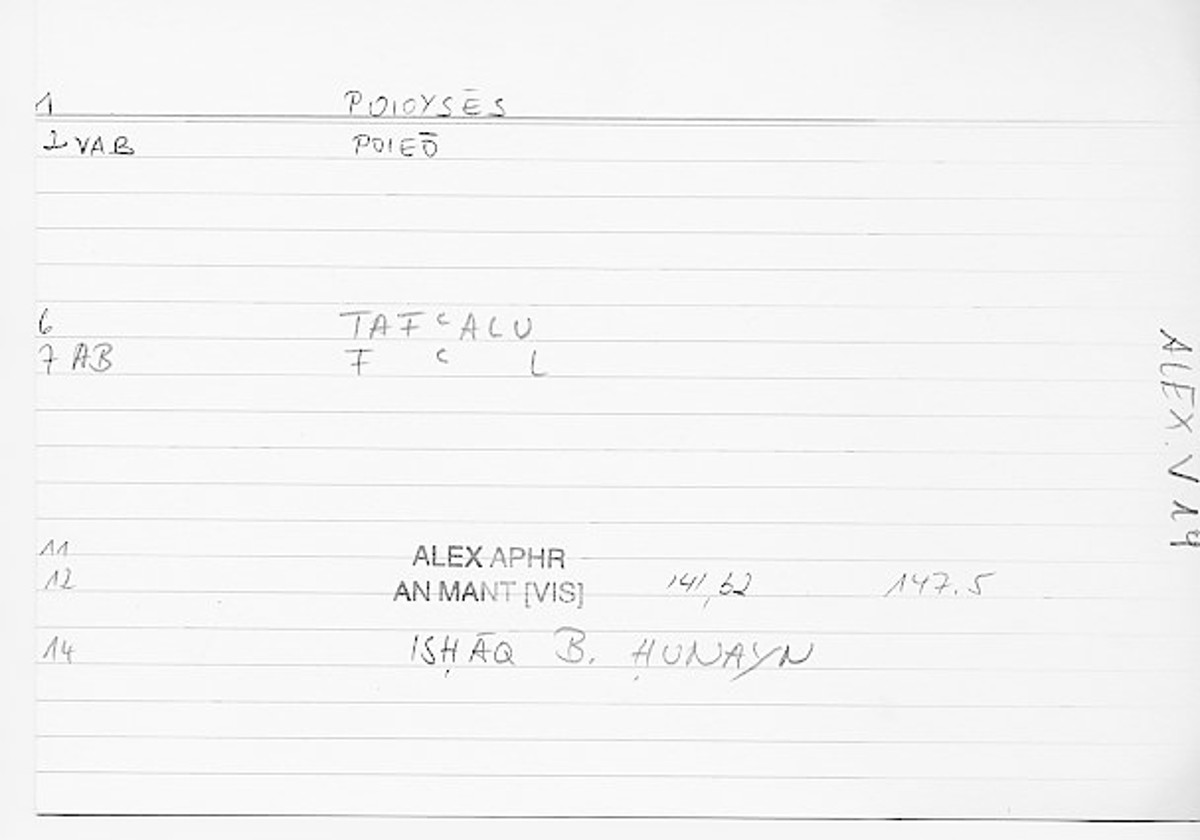 1 POIOYSĒS
2 VAB POIEŌ
6 TAFʿALU
7 AB F ʿ L
11 ALEX APHR
12 AN MANT [VIS] 141,62 147.5
14 ISḤĀQ B. ḤUNAYN
ALEX. V 14